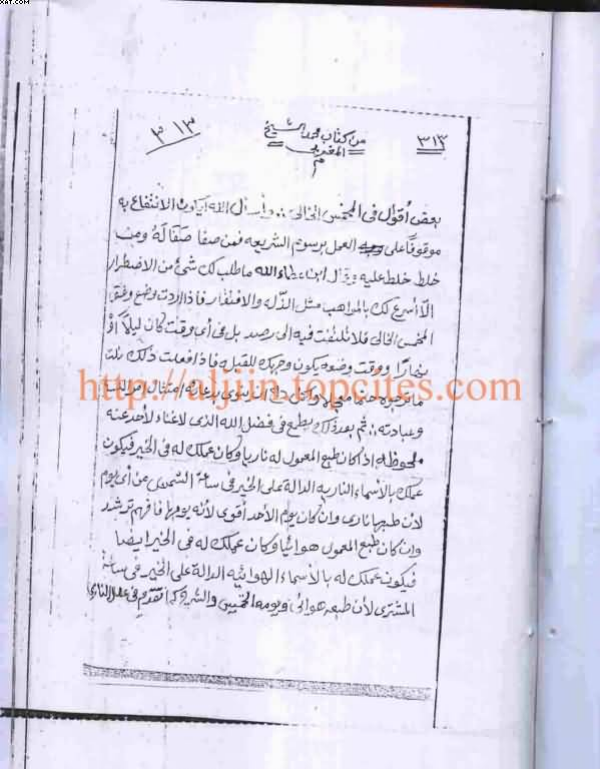 XAT.COM
٣١٣
من كتاب محمد الشيخ
المغربي
م
٣١٣
بعض أقوال في المخمس الخالي ∴ وأسأل الله أن يكون الانتفاع به
موقوفا على العمل برسوم الشريعه فمن صفا صفا له ومن
خلط خلط عليه وقال ابن عطاء الله ما طلب لك شئ من الاضطرار
الا أسرع لك بالمواهب مثل الذل والافتقار فاذا اردت وضع وفق
المخمس الخالي فلا تلتفت فيه الى رصد بل في أى وقت كان ليلا أو
نهارا ووقت وضوء يكون وجهك للقبله فاذا فعلت ذلك نلت
ما
وعبادته ∴ ثم بعد ذلك يطمع في فضل الله الذى لا غناء لأحد عنه
ملحوظه اذا كان طبع المعمول له ناريا وكان عملك له في الخير فيكون
عملك بالأسماء الناريه الدالة على الخير في ساعة الشمس من أى يوم
لأن طبعها نارى وان كان يوم الأحد أقوى لأنه يومها فافهم ترشد
وان كان طبع المعمول هوائيا وكان عملك له في الخير ايضا
فيكون عملك له بالأسماء الهوائيه الدالة على الخير في ساعة
المشترى لأن طبعه هوائى ويومه الخميس والشروع كما تقدم في عمل النارى
http://aljiin.topcites.com